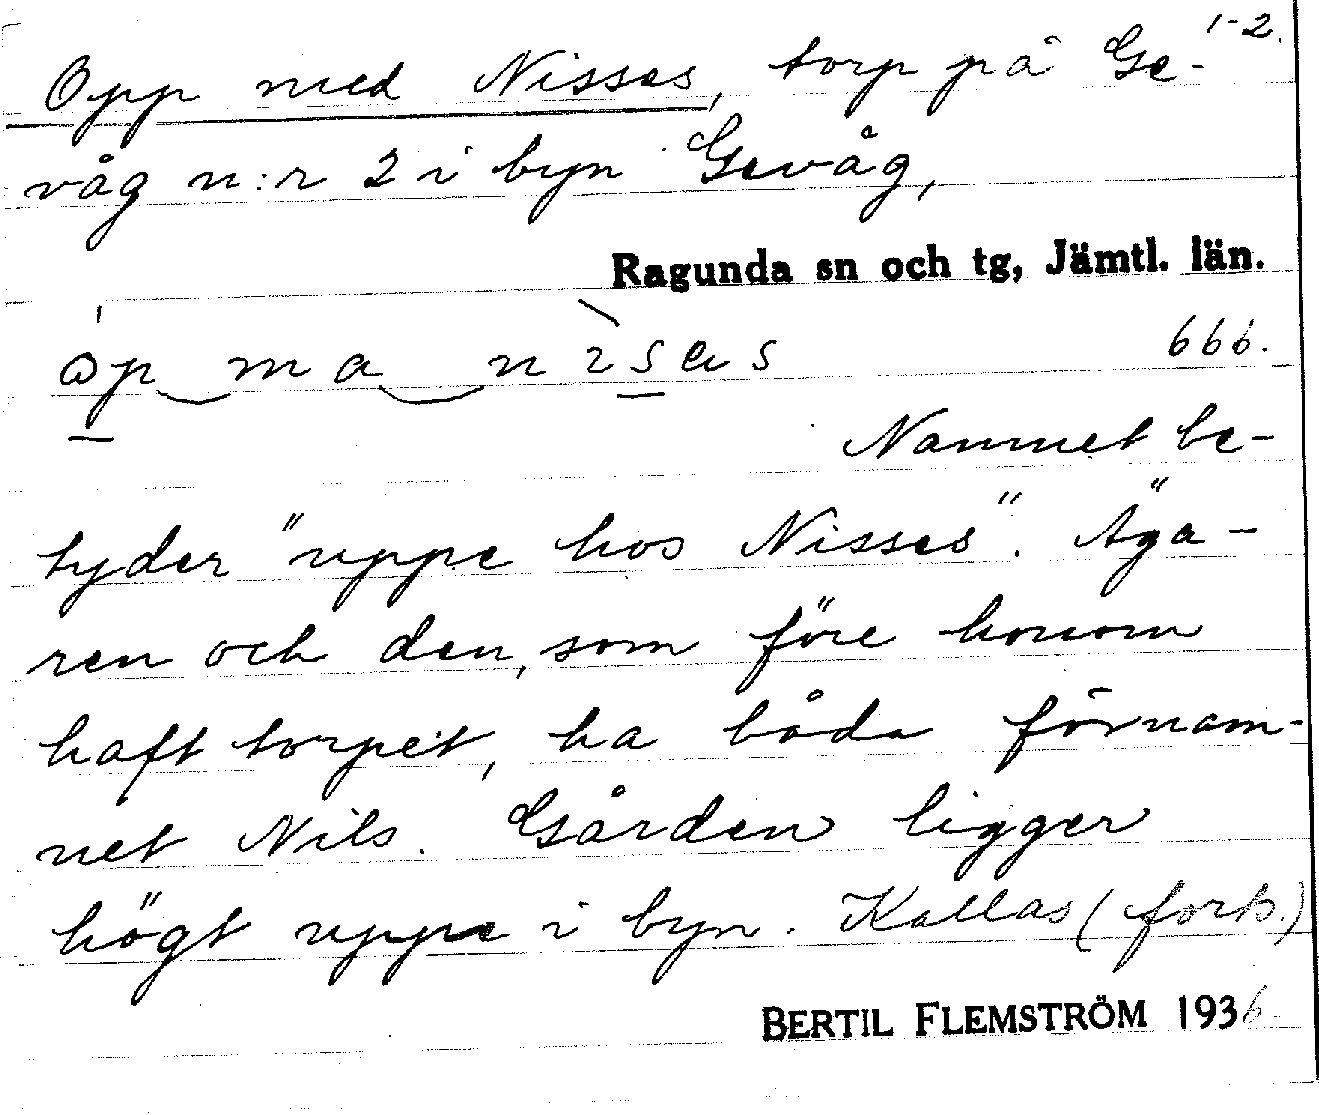 1-2.
Opp med Nisses, torp på Ge-
våg n:r 2 i byn Gevåg,
Ragunda sn och tg, Jämtl. län.
öp ma nises
666.
Namnet be-
tyder "uppe hos Nisses". Äga-
ren och den, som före honom
haft torpet, ha båda förnam-
net Nils. Gården ligger
högt uppe i byn. Kallas (forts.)
BERTIL FLEMSTRÖM 1936